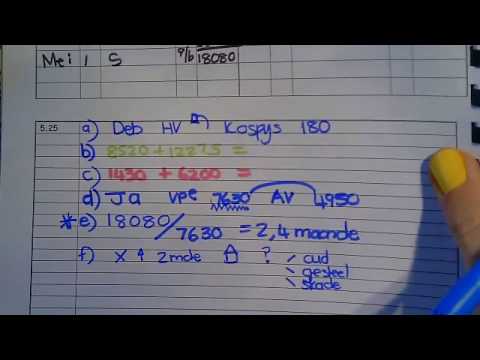 Mei 1 S a/b 18080
5.25 a) Deb HV Kospys 180
b) 8520 + 12275 =
c) 1430 + 6200 =
d) Ja vpe 7630 AV 4950
*e) 18080/7630 = 2,4 maande
f) X ↑ 2mde ?
oud
gesteel
skade